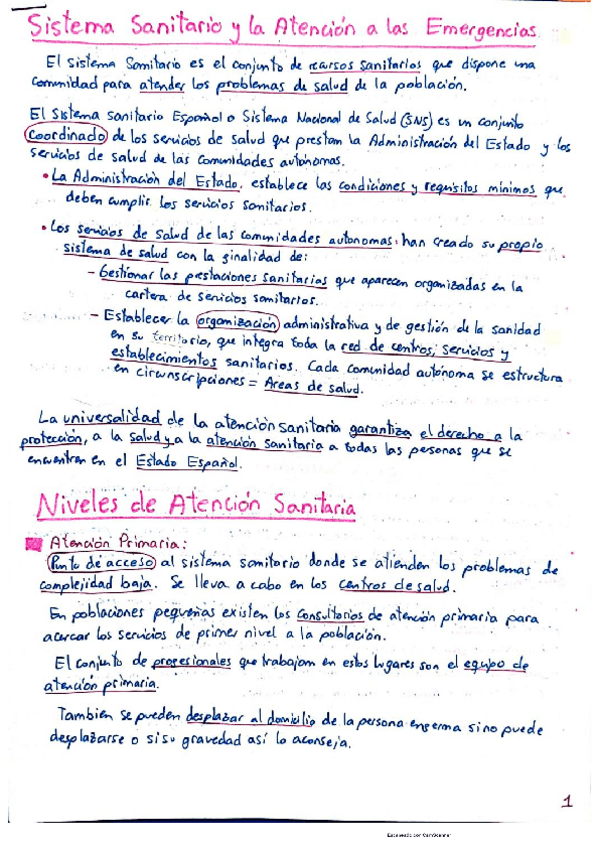 Sistema Sanitario y la Atención a las Emergencias
El Sistema Sanitario es el conjunto de recursos sanitarios que dispone una
comunidad para atender los problemas de salud de la población.
El Sistema Sanitario Español o Sistema Nacional de Salud (SNS) es un conjunto
coordinado de los servicios de salud que prestan la Administración del Estado y los
servicios de salud de las comunidades autónomas.
• La Administración del Estado, establece las condiciones y requisitos mínimos que
deben cumplir los servicios sanitarios.
• Los servicios de salud de las comunidades autonomas: han creado su propio
sistema de salud con la finalidad de:
- Gestionar las prestaciones sanitarias que aparecen organizadas en la
cartera de servicios sanitarios.
- Establecer la organización administrativa y de gestión de la sanidad
en su territorio, que integra toda la red de centros, servicios y
establecimientos sanitarios. Cada comunidad autónoma se estructura
en circunscripciones = Areas de salud.
La universalidad de la atención sanitaria garantiza el derecho a la
protección, a la salud y a la atención sanitaria a todas las personas que se
encuentran en el Estado Español.
Niveles de Atención Sanitaria
Atención Primaria:
Punto de acceso al sistema sanitario donde se atienden los problemas de
complejidad baja. Se lleva a cabo en los centros de salud.
En poblaciones pequeñas existen los consultorios de atención primaria para
acercar los servicios de primer nivel a la población.
El conjunto de profesionales que trabajan en estos lugares son el equipo de
atención primaria.
Tambien se pueden desplazar al domicilio de la persona enferma si no puede
desplazarse o si su gravedad así lo aconseja.
1
Escaneado con CamScanner